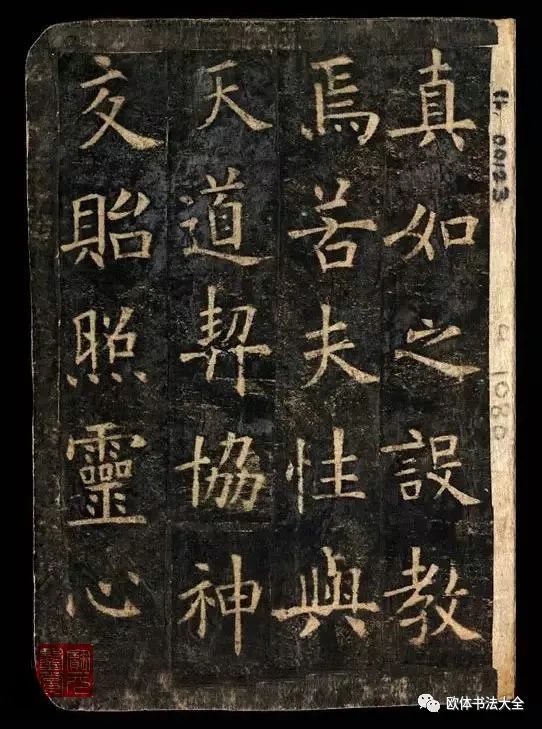 真如之設教
焉若夫性與
天道契協神
交貽照靈心
th. 00123
1080
欧体书法大全